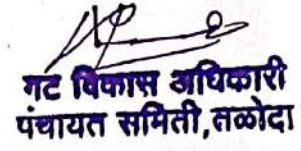 गट विकास अधिकारी
पंचायत समिती,तळोदा